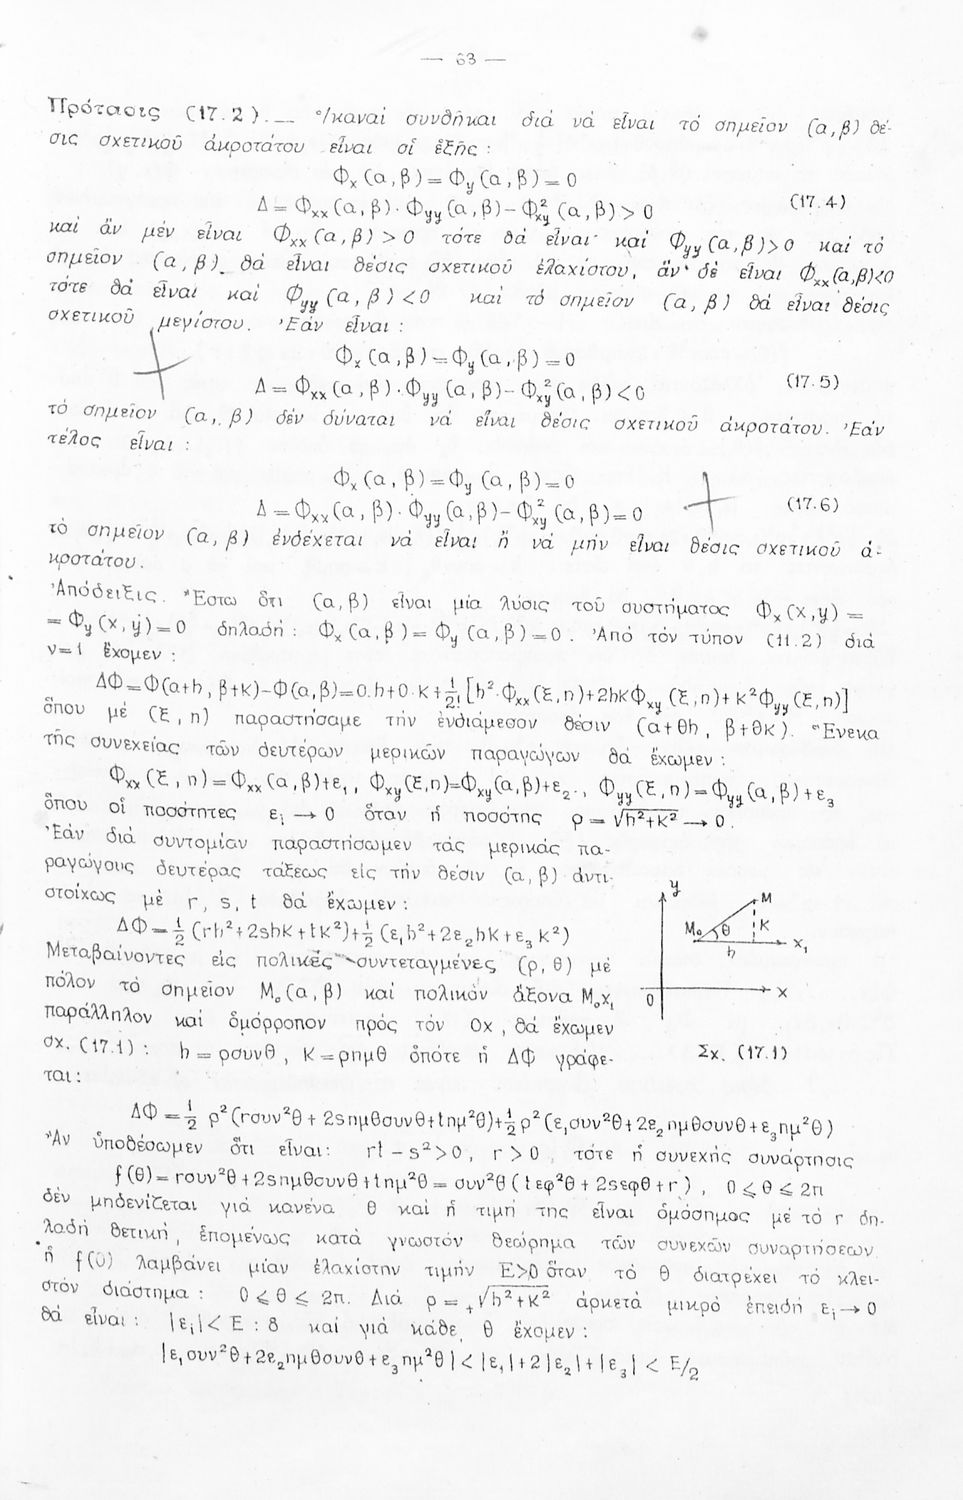 — 63 —
Πρότασις (17.2).__ Ἱκαναί συνθῆκαι διά νά εἶναι τό σημεῖον (α,β) θέ-
σις σχετικοῦ ἀκροτάτου εἶναι οἱ ἑξῆς :
Φₓ(α,β)=Φ_y(α,β)=0
Δ=Φₓₓ(α,β)·Φ_yy(α,β)-Φ²_xy(α,β)>0 (17.4)
καί ἄν μέν εἶναι Φₓₓ(α,β)>0 τότε θά εἶναι καί Φ_yy(α,β)>0 καί τό
σημεῖον (α,β) θά εἶναι θέσις σχετικοῦ ἐλαχίστου, ἄν δέ εἶναι Φₓₓ(α,β)<0
τότε θά εἶναι καί Φ_yy(α,β)<0 καί τό σημεῖον (α,β) θά εἶναι θέσις
σχετικοῦ μεγίστου. Ἐάν εἶναι :
Φₓ(α,β)=Φ_y(α,β)=0
Δ=Φₓₓ(α,β)·Φ_yy(α,β)-Φ²_xy(α,β)<0 (17.5)
τό σημεῖον (α,β) δέν δύναται νά εἶναι θέσις σχετικοῦ ἀκροτάτου. Ἐάν
τέλος εἶναι :
Φₓ(α,β)=Φ_y(α,β)=0
Δ=Φₓₓ(α,β)·Φ_yy(α,β)-Φ²_xy(α,β)=0 (17.6)
τό σημεῖον (α,β) ἐνδέχεται νά εἶναι ἤ νά μήν εἶναι θέσις σχετικοῦ ἀ-
κροτάτου.
Ἀπόδειξις. Ἔστω ὅτι (α,β) εἶναι μία λύσις τοῦ συστήματος Φₓ(x,y)=
=Φ_y(x,y)=0 δηλαδή : Φₓ(α,β)=Φ_y(α,β)=0. Ἀπό τόν τύπον (11.2) διά
ν=1 ἔχομεν :
ΔΦ=Φ(α+h,β+κ)-Φ(α,β)=0.h+0·κ+1/2![h²·Φₓₓ(ξ,η)+2hκΦ_xy(ξ,η)+κ²Φ_yy(ξ,η)]
ὅπου μέ (ξ,η) παραστήσαμε τήν ἐνδιάμεσον θέσιν (α+θh, β+θκ). Ἕνεκα
τῆς συνεχείας τῶν δευτέρων μερικῶν παραγώγων θά ἔχωμεν :
Φₓₓ(ξ,η)=Φₓₓ(α,β)+ε₁, Φ_xy(ξ,η)=Φ_xy(α,β)+ε₂., Φ_yy(ξ,η)=Φ_yy(α,β)+ε₃
ὅπου οἱ ποσότητες εᵢ→0 ὅταν ἡ ποσότης ρ=√h²+κ²→0.
Ἐάν διά συντομίαν παραστήσωμεν τάς μερικάς πα-
ραγώγους δευτέρας τάξεως εἰς τήν θέσιν (α,β) ἀντι-
στοίχως μέ r, s, t θά ἔχωμεν :
ΔΦ=½(rh²+2shκ+tκ²)+½(ε₁h²+2ε₂hκ+ε₃κ²)
Μεταβαίνοντες εἰς πολικές συντεταγμένες (ρ,θ) μέ
πόλον τό σημεῖον M₀(α,β) καί πολικόν ἄξονα M₀x₁
παράλληλον καί ὁμόρροπον πρός τόν Ox, θά ἔχωμεν
σχ. (17.1) : h=ρσυνθ, κ=ρημθ ὁπότε ἡ ΔΦ γράφε-
ται :
y
M
M₀ θ κ
h x₁
0 x
Σχ. (17.1)
ΔΦ=½ρ²(rσυν²θ+2sημθσυνθ+tημ²θ)+½ρ²(ε₁συν²θ+2ε₂ημθσυνθ+ε₃ημ²θ)
Ἄν ὑποθέσωμεν ὅτι εἶναι : rt-s²>0, r>0, τότε ἡ συνεχής συνάρτησις
f(θ)=rσυν²θ+2sημθσυνθ+tημ²θ=συν²θ(tεφ²θ+2sεφθ+r), 0⩽θ⩽2π
δέν μηδενίζεται γιά κανένα θ καί ἡ τιμή της εἶναι ὁμόσημος μέ τό r δη-
λαδή θετική, ἑπομένως κατά γνωστόν θεώρημα τῶν συνεχῶν συναρτήσεων
ἡ f(θ) λαμβάνει μίαν ἐλαχίστην τιμήν E>0 ὅταν τό θ διατρέχει τό κλει-
στόν διάστημα : 0⩽θ⩽2π. Διά ρ=+√h²+κ² ἀρκετά μικρό ἐπειδή εᵢ→0
θά εἶναι : |εᵢ|<E:8 καί γιά κάθε θ ἔχομεν :
|ε₁συν²θ+2ε₂ημθσυνθ+ε₃ημ²θ|<|ε₁|+2|ε₂|+|ε₃|<E/2